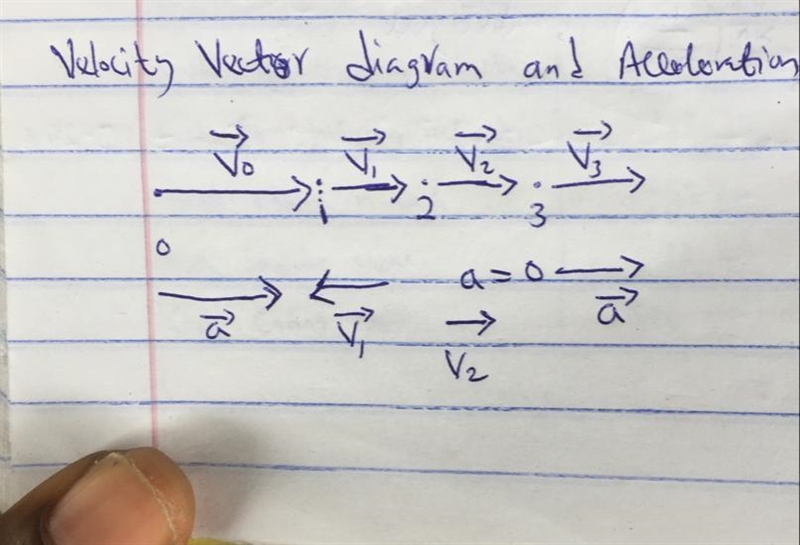 Velocity Vector diagram and Acceleration
V⃗₀ V⃗₁ V⃗₂ V⃗₃
0 1 2 3
a = 0
a⃗ V⃗₁ V₂ a⃗